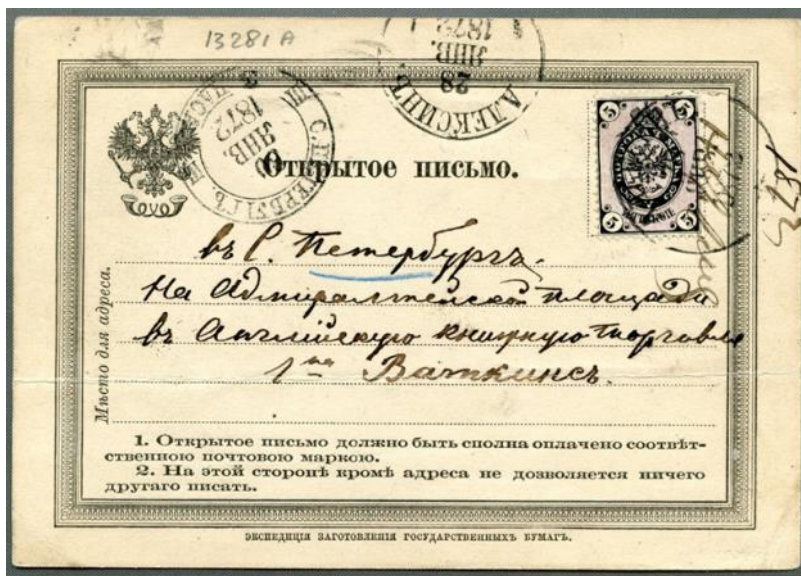 13281 А
АЛЕКСИНЪ
28
ЯНВ.
1872
С.ПЕТЕРБУРГЪ.
ЯНВ.
1872
5 5
5 5
Открытое письмо.
въ С. Петербургъ.
На Адмиралтейской площади
въ Английскую книжную торговлю
Г-на Ваткинсъ.
Мѣсто для адреса.
1. Открытое письмо должно быть сполна оплачено соотвѣт-
ственною почтовою маркою.
2. На этой сторонѣ кромѣ адреса не дозволяется ничего
другаго писать.
ЭКСПЕДИЦІЯ ЗАГОТОВЛЕНІЯ ГОСУДАРСТВЕННЫХЪ БУМАГЪ.